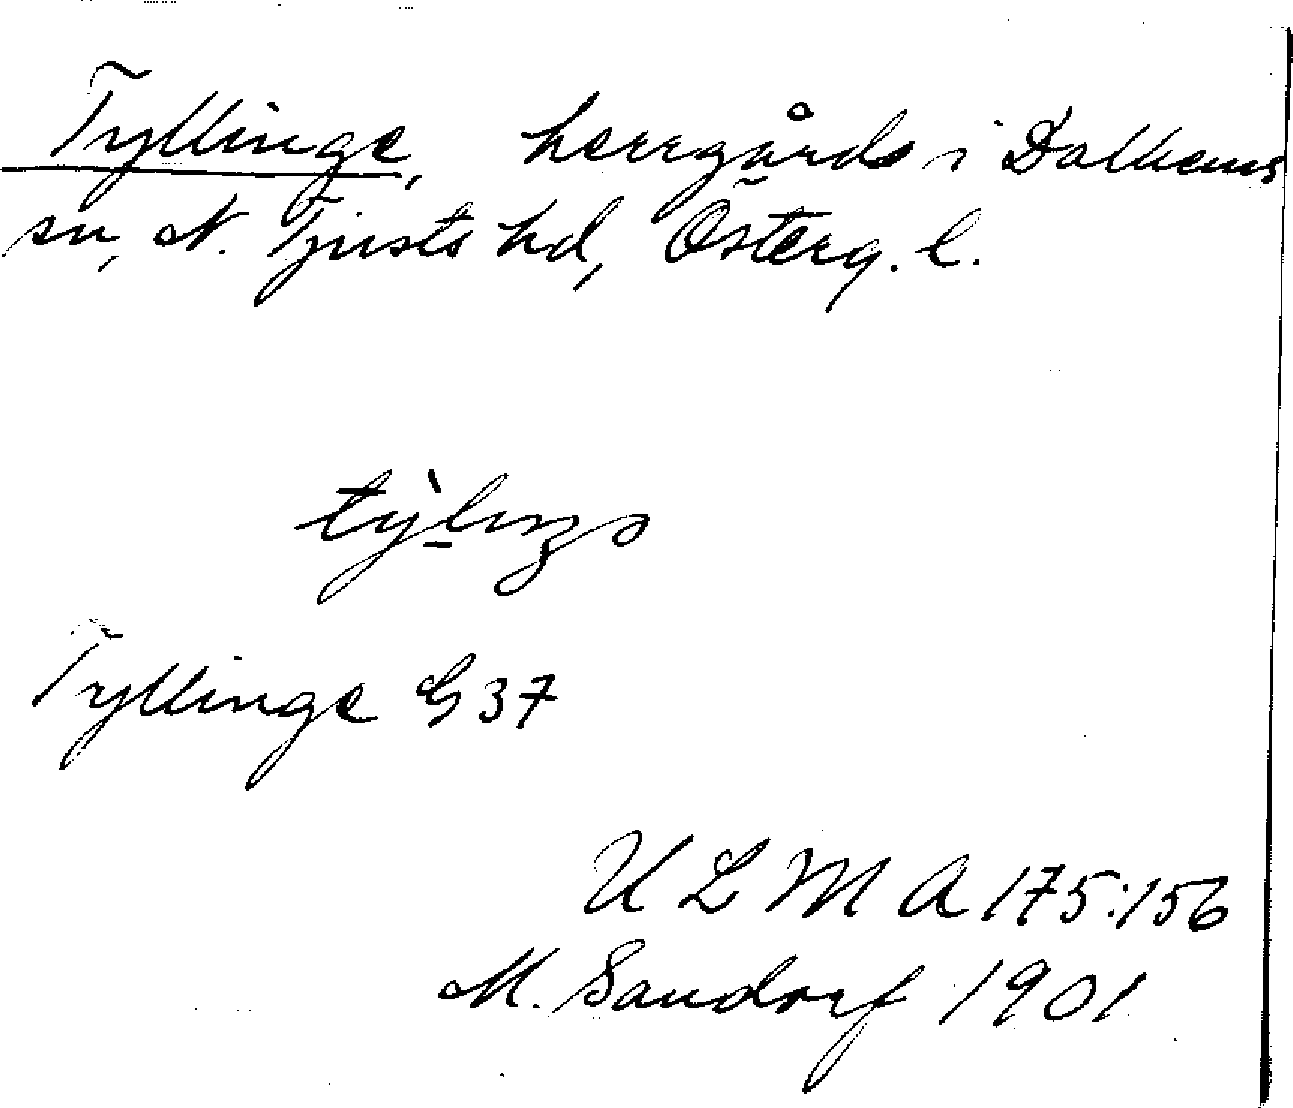 Tyllinge, herrgårds i Dalhems
sn, N. Tjusts hd, Österg. l.
Tyllinge G 37
U L M A 175:156
M. Sandorf 1901